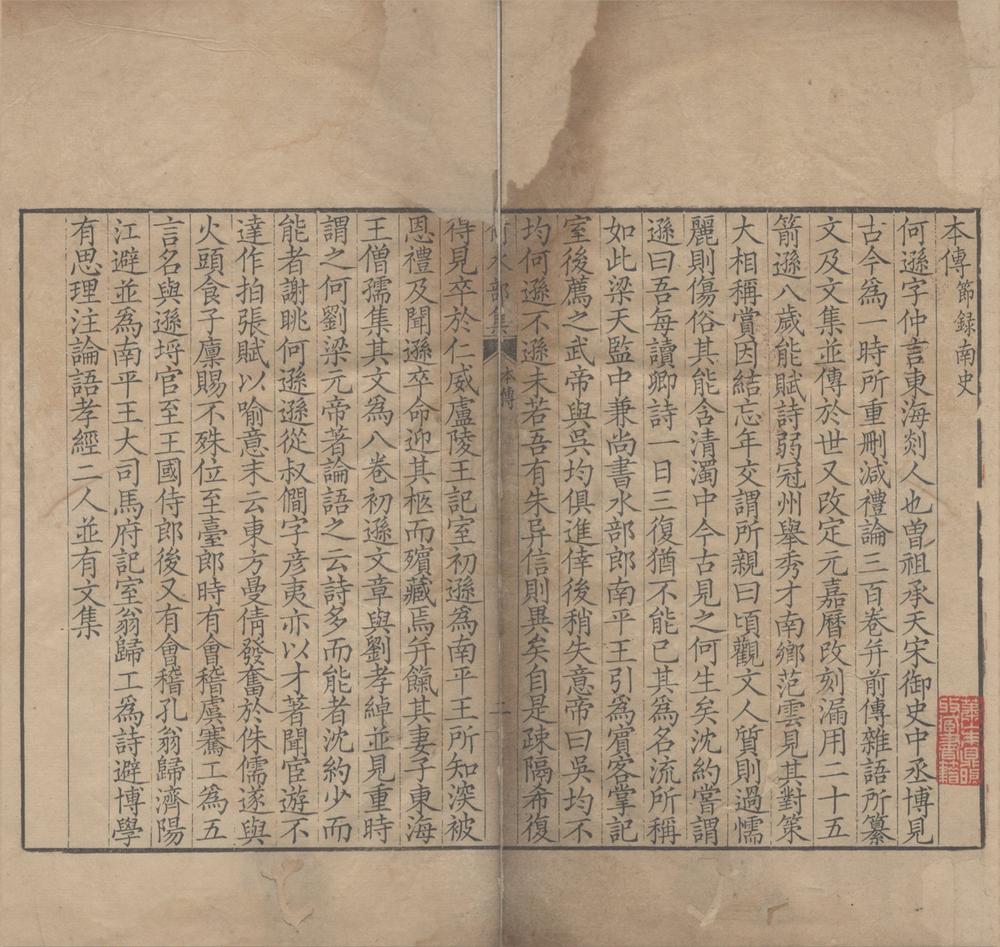 本傳節録南史
何遜字仲言東海剡人也曽祖承天宋御史中丞博見
古今爲一時所重刪減禮論三百卷并前傳雜語所纂
文及文集並傳於世又改定元嘉曆改刻漏用二十五
箭遜八歲能賦詩弱冠州舉秀才南鄉范雲見其對策
大相稱賞因結忘年交謂所親曰頃觀文人質則過懦
麗則傷俗其能含清濁中今古見之何生矣沈約嘗謂
遜曰吾每讀卿詩一日三復猶不能已其爲名流所稱
如此梁天監中兼尚書水部郎南平王引爲賓客掌記
室後薦之武帝與吳均俱進倖後稍失意帝曰吳均不
均何遜不遜未若吾有朱异信則異矣自是疎隔希復
何水部集
本傳
二
得見卒於仁威盧陵王記室初遜爲南平王所知深被
恩禮及聞遜卒命迎其柩而殯藏焉并餼其妻子東海
王僧孺集其文爲八卷初遜文章與劉孝綽並見重時
謂之何劉梁元帝著論語之云詩多而能者沈約少而
能者謝眺何遜遜從叔僩字彦夷亦以才著聞宦遊不
達作拍張賦以喻意末云東方曼倩發奮於侏儒遂與
火頭食子稟賜不殊位至臺郎時有會稽虞騫工爲五
言名與遜埒官至王國侍郎後又有會稽孔翁歸濟陽
江避並爲南平王大司馬府記室翁歸工爲詩避博學
有思理注論語孝經二人並有文集